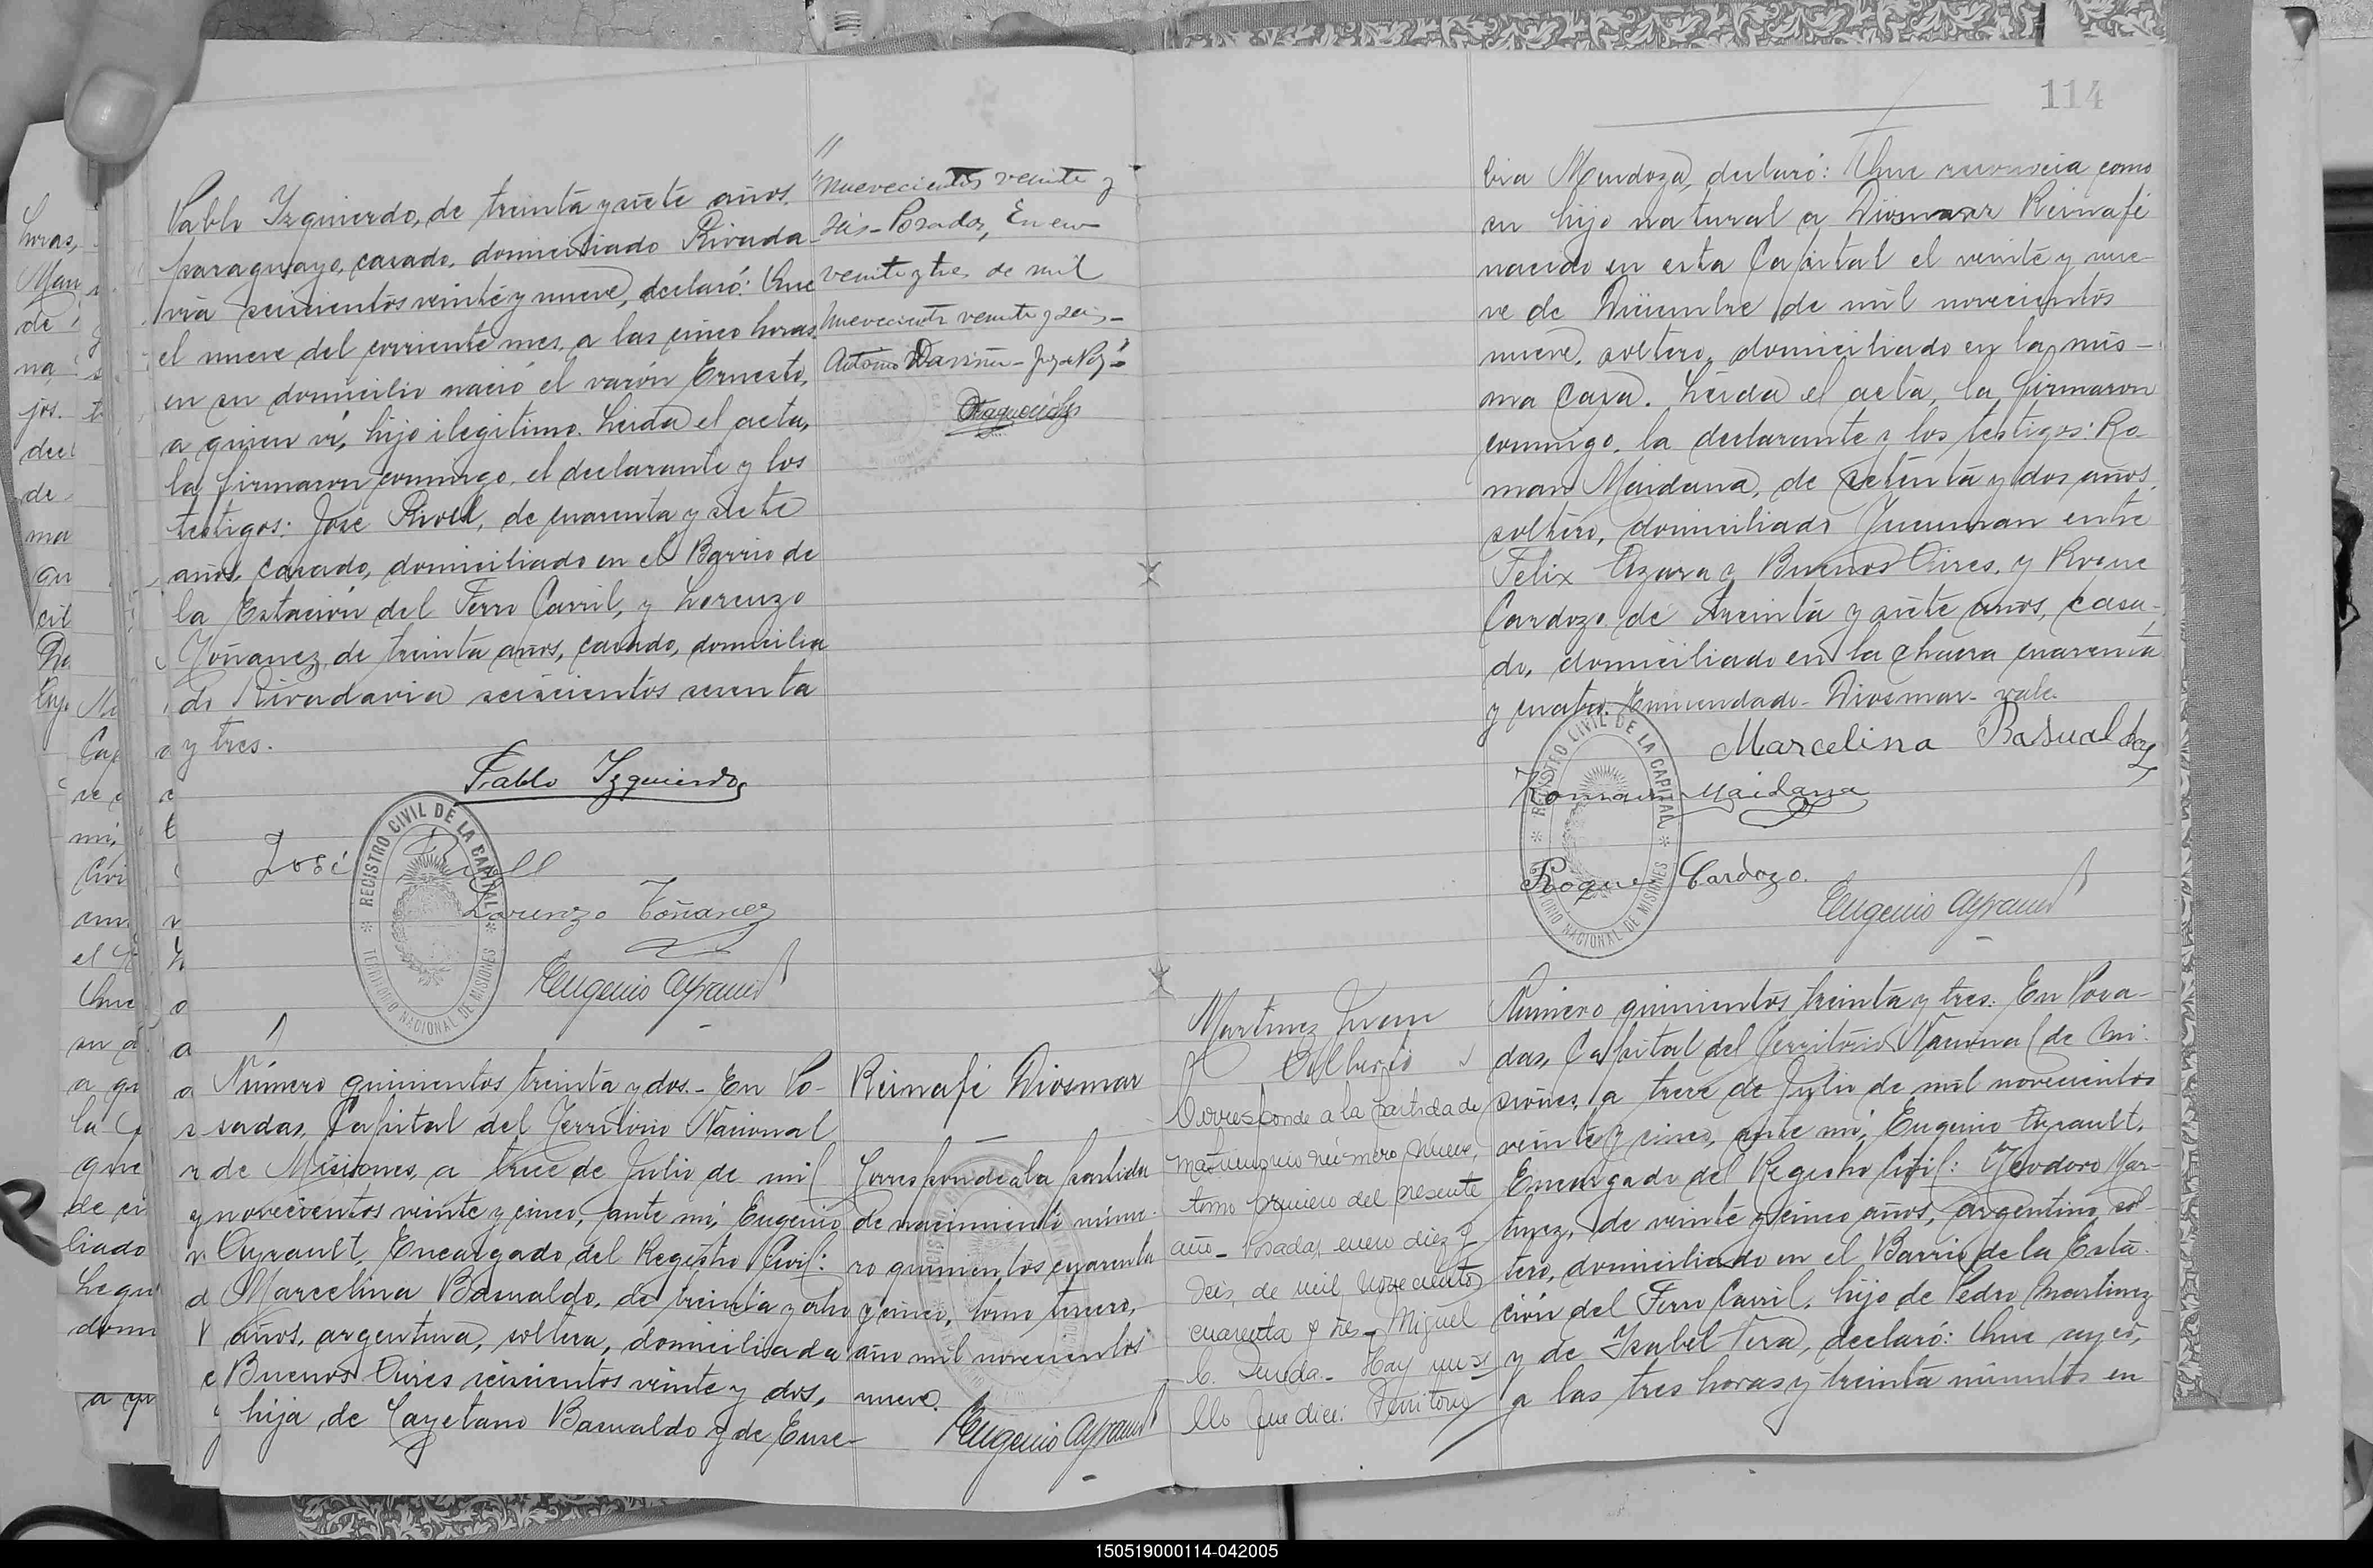 Pablo Izquierdo, de treinta y siete años,
paraguayo, casado, domiciliado Rivada-
via seiscientos veinte y nueve, declaró: Que
el nueve del corriente mes, a las cinco horas,
en su domicilio nació el varón Ernesto,
a quien ví, hijo ilegítimo. Leida el acta,
la firmaron conmigo, el declarante y los
testigos: José Rivell, de cuarenta y siete
años, casado, domiciliado en el Barrio de
la Estación del Ferro Carril, y Lorenzo
Toñanez, de treinta años, casado, domicilia
do Rivadavia seiscientos sesenta
y tres.
Pablo Izquierdo
José
Lorenzo Toñanez
Eugenio Ayrault
REGISTRO CIVIL DE LA CAPITAL
TERRITORIO NACIONAL DE MISIONES
nuevecientos veinte y
seis - Posadas, Enero
veinte y tres de mil
nuevecientos veinte y seis -
Antonio
Número quinientos treinta y dos. - En Po-
sadas, Capital del Territorio Nacional
de Misiones, a trece de Julio de mil
novecientos veinte y cinco, ante mí, Eugenio
Ayrault, Encargado del Registro Civil:
Marcelina Basualdo, de treinta y ocho
años, argentina, soltera, domiciliada
Buenos Aires seiscientos veinte y dos,
hija de Cayetano Basualdo y de Euse-
Reinafé Diosmar
Corresponde a la partida
de nacimiento núme-
ro quinientos cuarenta
y cinco, tomo tercero,
año mil novecientos
nueve.
Eugenio Ayrault
114
bia Mendoza, declaró: Que reconocia como
su hijo natural a Diosmar Reinafé
nacido en esta Capital el veinte y nue-
ve de Diciembre de mil novecientos
nueve, soltero, domiciliado en la mis-
ma casa. Leida el acta, la firmaron
conmigo, la declarante y los testigos: Ro-
man Maidana, de setenta y dos años,
soltero, domiciliado Tucuman entre
Felix Azara y Buenos Aires, y Roque
Cardozo de treinta y siete años, casa-
do, domiciliado en la chacra cuarenta
y cuatro. Enmendado - Diosmar - vale.
Marcelina Basualdo
Roman Maidana
Roque Cardozo.
Eugenio Ayrault
REGISTRO CIVIL DE LA CAPITAL
TERRITORIO NACIONAL DE MISIONES
Martinez Juan
Corresponde a la partida de
matrimonio número nueve,
tomo primero del presente
año - Posadas, enero diez y
seis, de mil novecientos
cuarenta y tres - Miguel
Hay un se
llo que dice: Territorio
Número quinientos treinta y tres. En Posa-
das, Capital del Territorio Nacional de Mi-
siones, a trece de Julio de mil novecientos
veinte y cinco, ante mí, Eugenio Ayrault,
Encargado del Registro Civil: Teodoro Mar-
tinez, de veinte y cinco años, argentino, sol-
tero, domiciliado en el Barrio de la Esta-
ción del Ferro Carril, hijo de Pedro Martinez
y de Isabel Vera, declaró: Que ayer,
a las tres horas y treinta minutos en
150519000114-042005